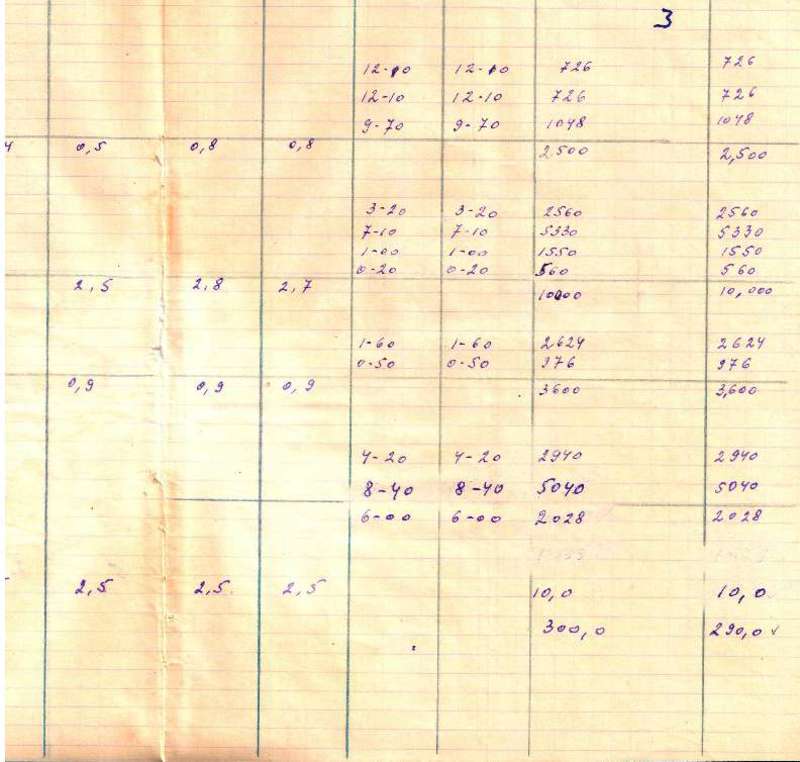 3
12-10 12-10 726 726
12-10 12-10 726 726
9-70 9-70 1048 1048
4 0,5 0,8 0,8 2500 2,500
3-20 3-20 2560 2560
7-10 7-10 5330 5330
1-00 1-00 1550 1550
0-20 0-20 560 560
2,5 2,8 2,7 10000 10,000
1-60 1-60 2624 2624
0-50 0-50 976 976
0,9 0,9 0,9 3600 3,600
4-20 4-20 2940 2940
8-40 8-40 5040 5040
6-00 6-00 2028 2028
2,5 2,5 2,5 10,0 10,0
300,0 290,0 ✓